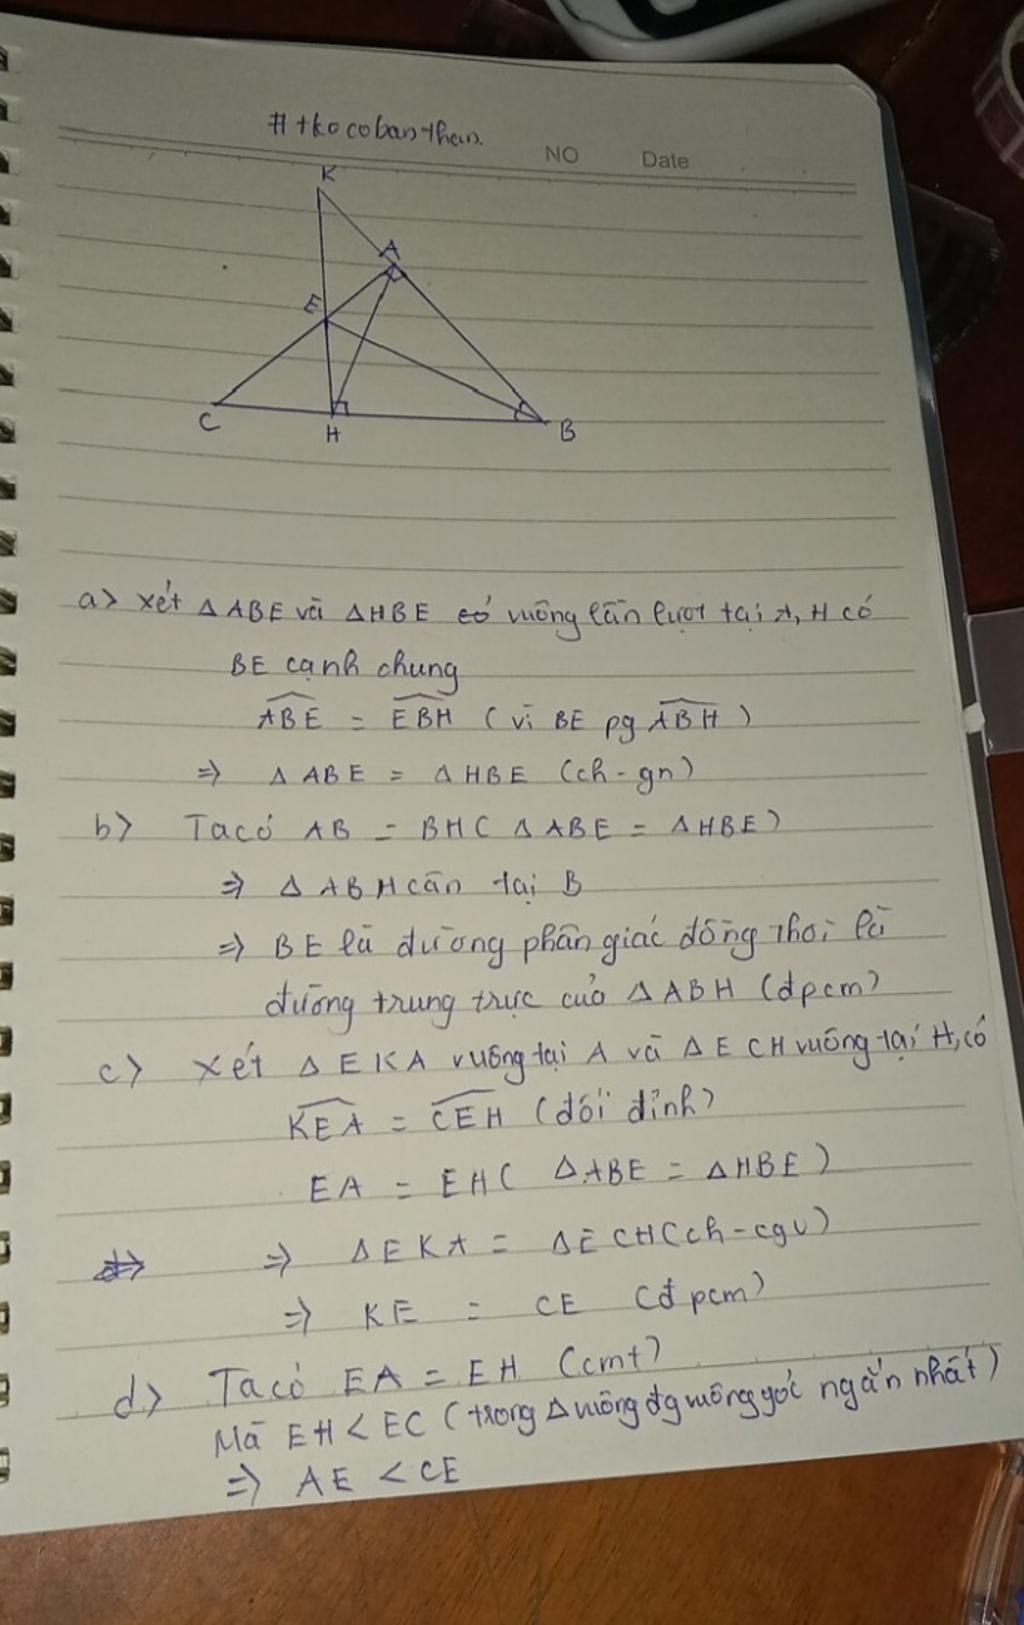 #tkocobanthan.
NO Date
K
A
E
C
H
B
a> xét Δ ABE và ΔHBE có vuông lần lượt tại A, H có
BE cạnh chung
ABE = EBH (vì BE pg ABH)
⇒ Δ ABE = ΔHBE (ch-gn)
b> Ta có AB = BH( Δ ABE = ΔHBE)
⇒ Δ ABH cân tại B
⇒ BE là đường phân giác đồng thời là
đường trung trực của ΔABH (đpcm)
c> xét ΔEKA vuông tại A và ΔECH vuông tại H, có
KEA = CEH (đối đỉnh)
EA = EH( ΔABE = ΔHBE)
⇒ ΔEKA = ΔECH(ch-cgv)
⇒ KE = CE (đpcm)
d> Ta có EA = EH (cmt)
Mà EH < EC (trong Δ vuông đg vuông góc ngắn nhất)
⇒ AE < CE